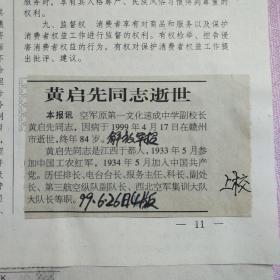 权利。
九、监督权　消费者享有对商品和服务以及保护
消费者权益工作进行监督的权利。有权检举、控告侵
害消费者权益的行为，有权对保护消费者权益工作提
出批评、建议。
黄启先同志逝世
本报讯　空军原第一文化速成中学副校长
黄启先同志，因病于1999年4月17日在赣州
市逝世，终年84岁。解放军报
黄启先同志是江西于都人，1933年5月参
加中国工农红军，1934年5月加入中国共产
党。历任排长、电台台长、股务主任、科长、副处
长、第三航空纵队副队长、西北空军集训大队
大队长等职。99.6.26日4版
上校
11